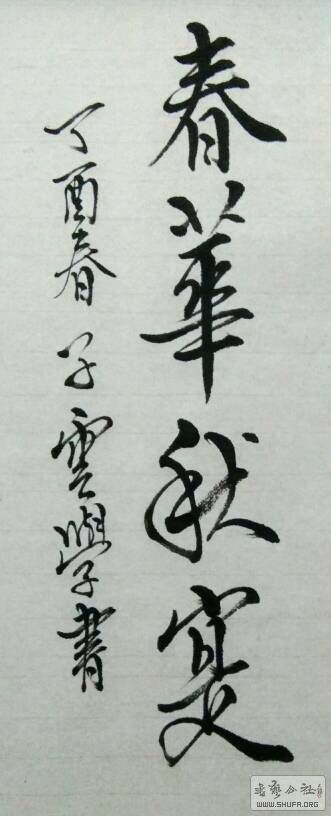 春華秋寔
丁酉春子雲學書
書藝公社
WWW.SHUFA.ORG